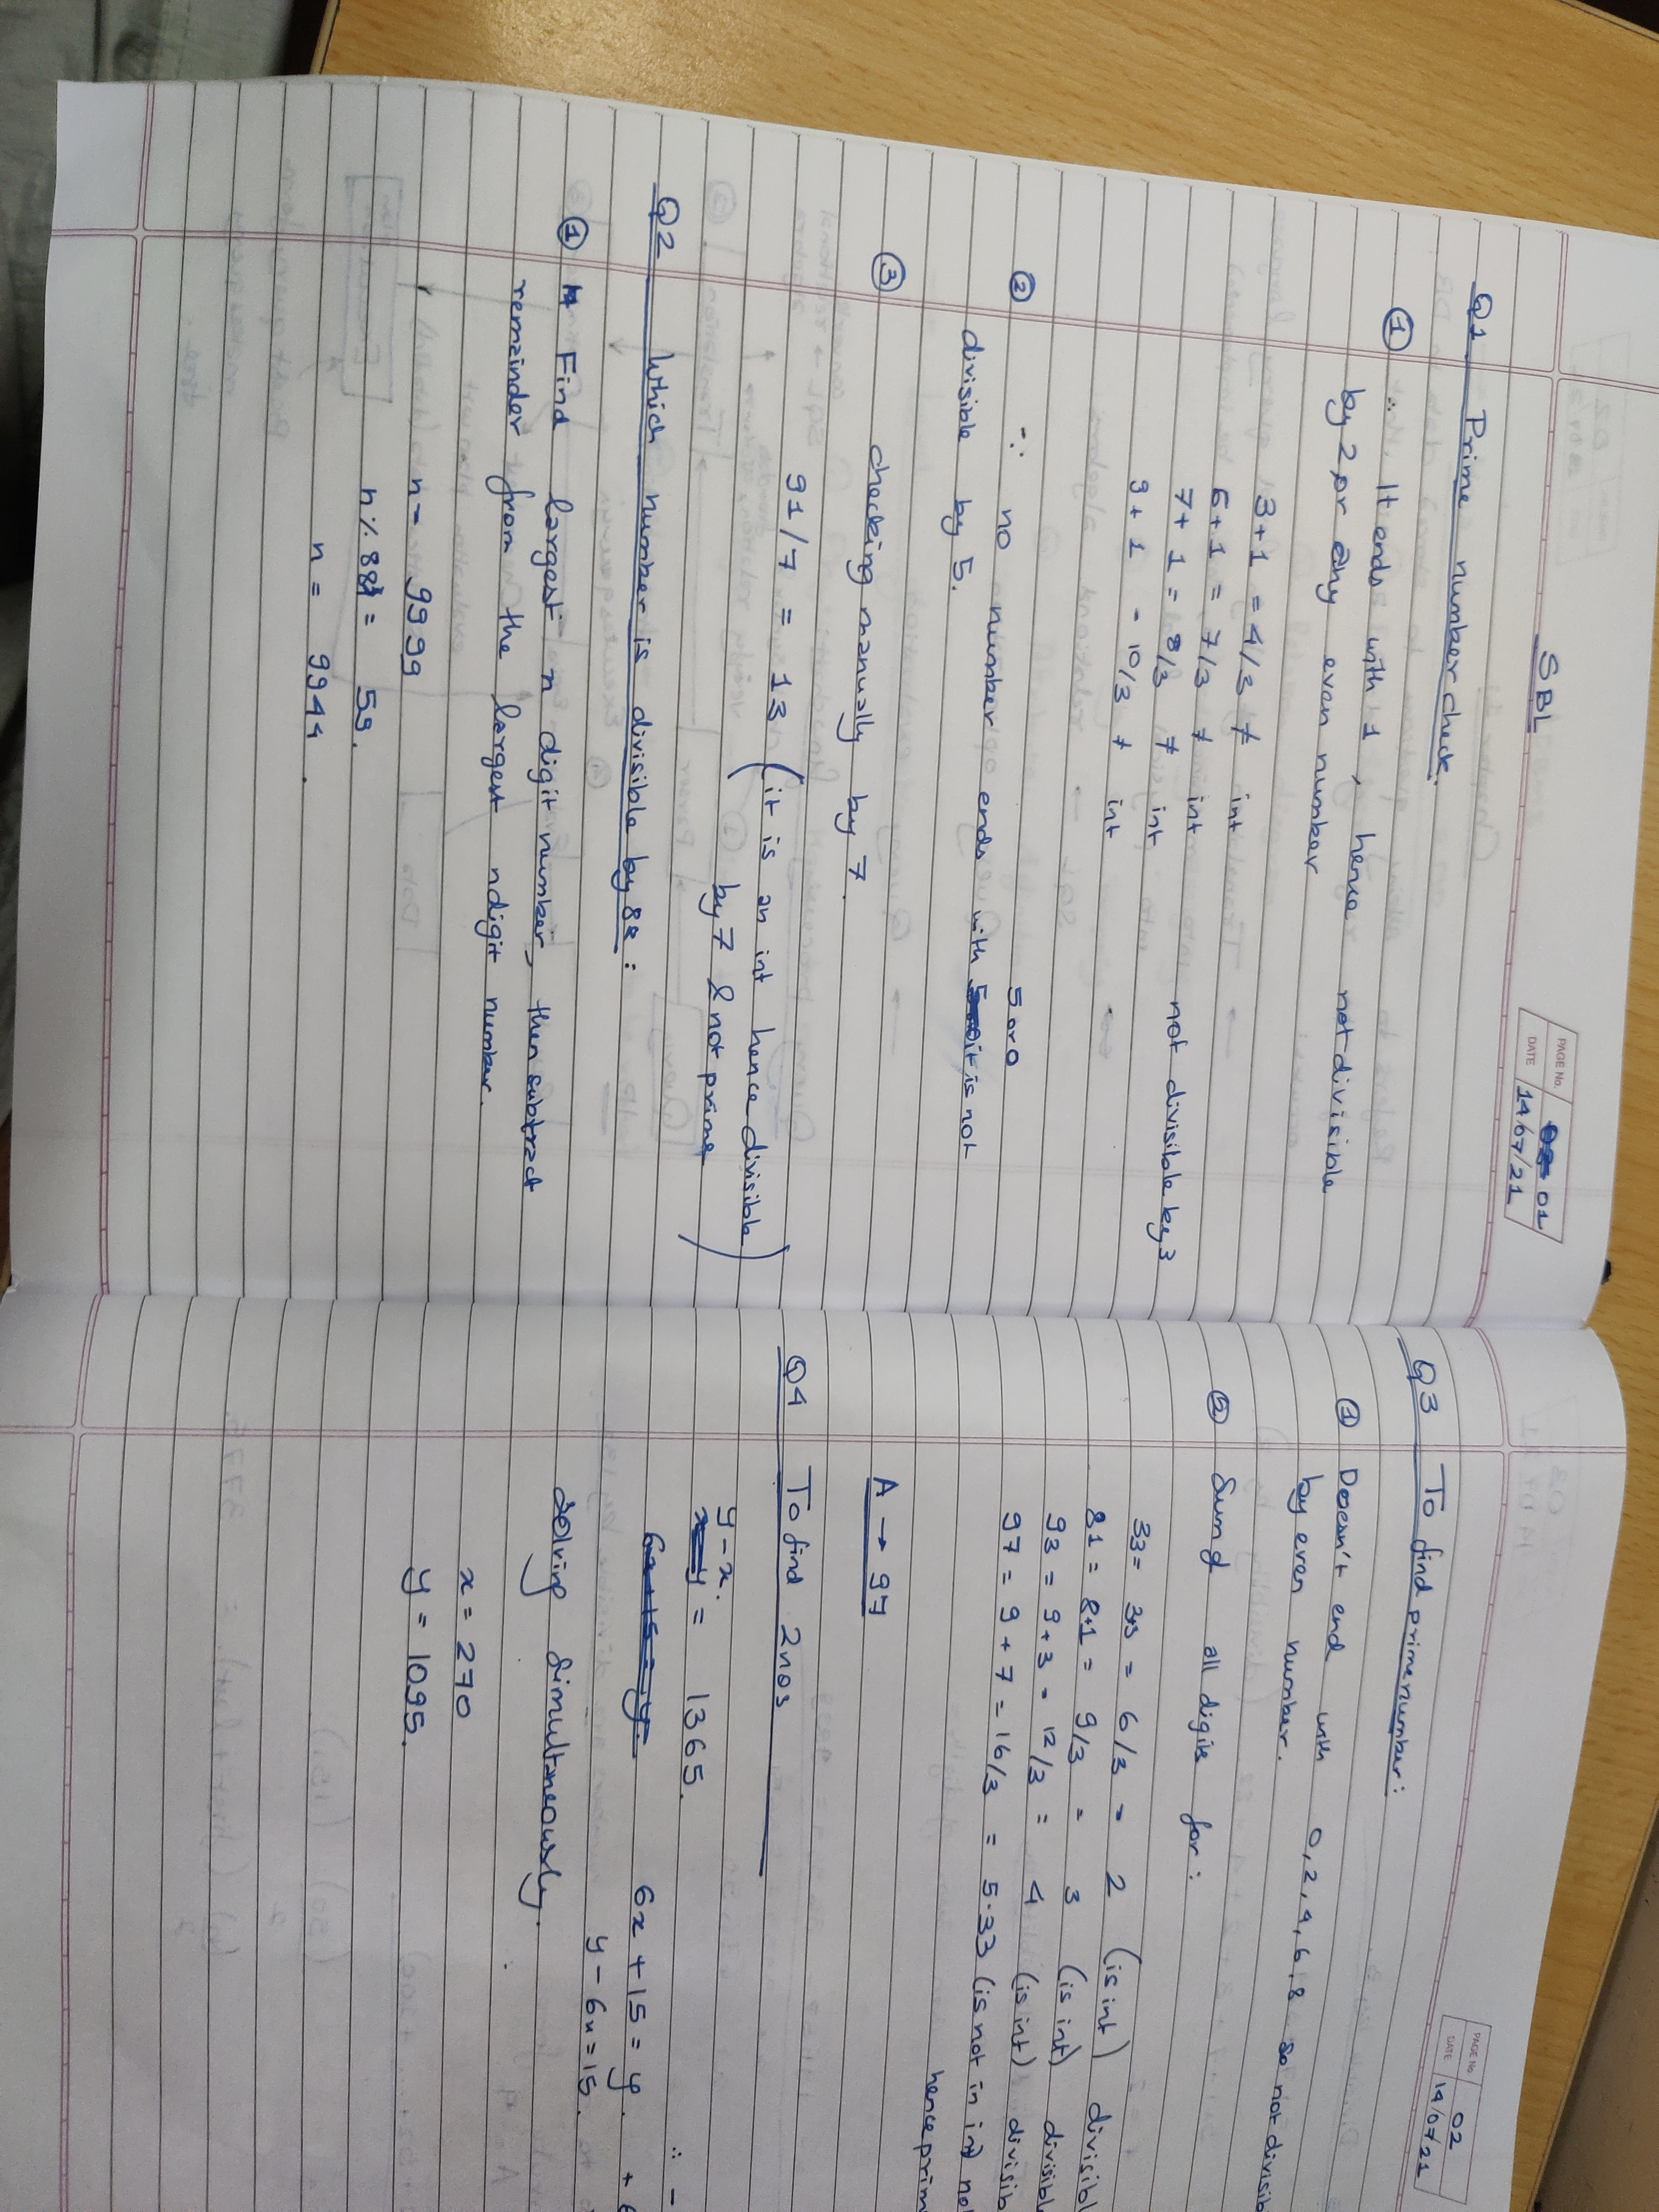 SBL
PAGE No. 01
DATE 14/07/21
Q1 Prime number check.
① ∴ It ends with 1, hence not divisible
by 2 or any even number
3+1 = 4/3 ≠ int
6+1 = 7/3 ≠ int
7+1 = 8/3 ≠ int not divisible by 3
9+1 = 10/3 ≠ int
② ∵ no number ends with 5 or 0 it is not
divisible by 5.
③ checking manually by 7.
91/7 = 13 (it is an int hence divisible
by 7 & not prime)
Q2 Which number is divisible by 88 :
① Find largest n digit number, then subtract
remainder from the largest n digit number.
n - 9999
n % 88 = 55.
n = 9944.
PAGE No. 02
DATE 14/07/21
Q3 To find prime number:
① Doesn't end with 0, 2, 4, 6, 8 so not
by even number.
② Sum of all digits for:
33 = 3+3 = 6/3 = 2 (is int)
81 = 8+1 = 9/3 = 3 (is int)
93 = 9+3 = 12/3 = 4 (is int)
97 = 9+7 = 16/3 = 5.33 (is not in int)
hence
A → 97
Q4 To find 2 nos
y - x. = 1365.
6x + 15 = y.
y - 6x = 15.
solving simultaneously.
x = 270
y = 1095.